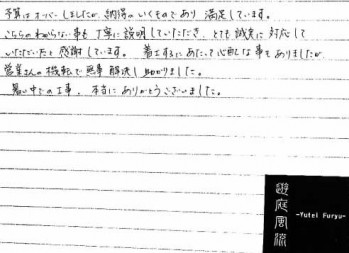 予算はオーバーしましたが、納得のいくものであり 満足しています。
こちらのわからない事も丁寧に説明していただき、とても誠実に対応して
いただいたと感謝しています。 着工するにあたって心配な事もありましたが
営業さんの機転で無事解決し助かりました。
暑い中での工事、本当にありがとうございました。
遊庭風流
-Yutei Furyu-